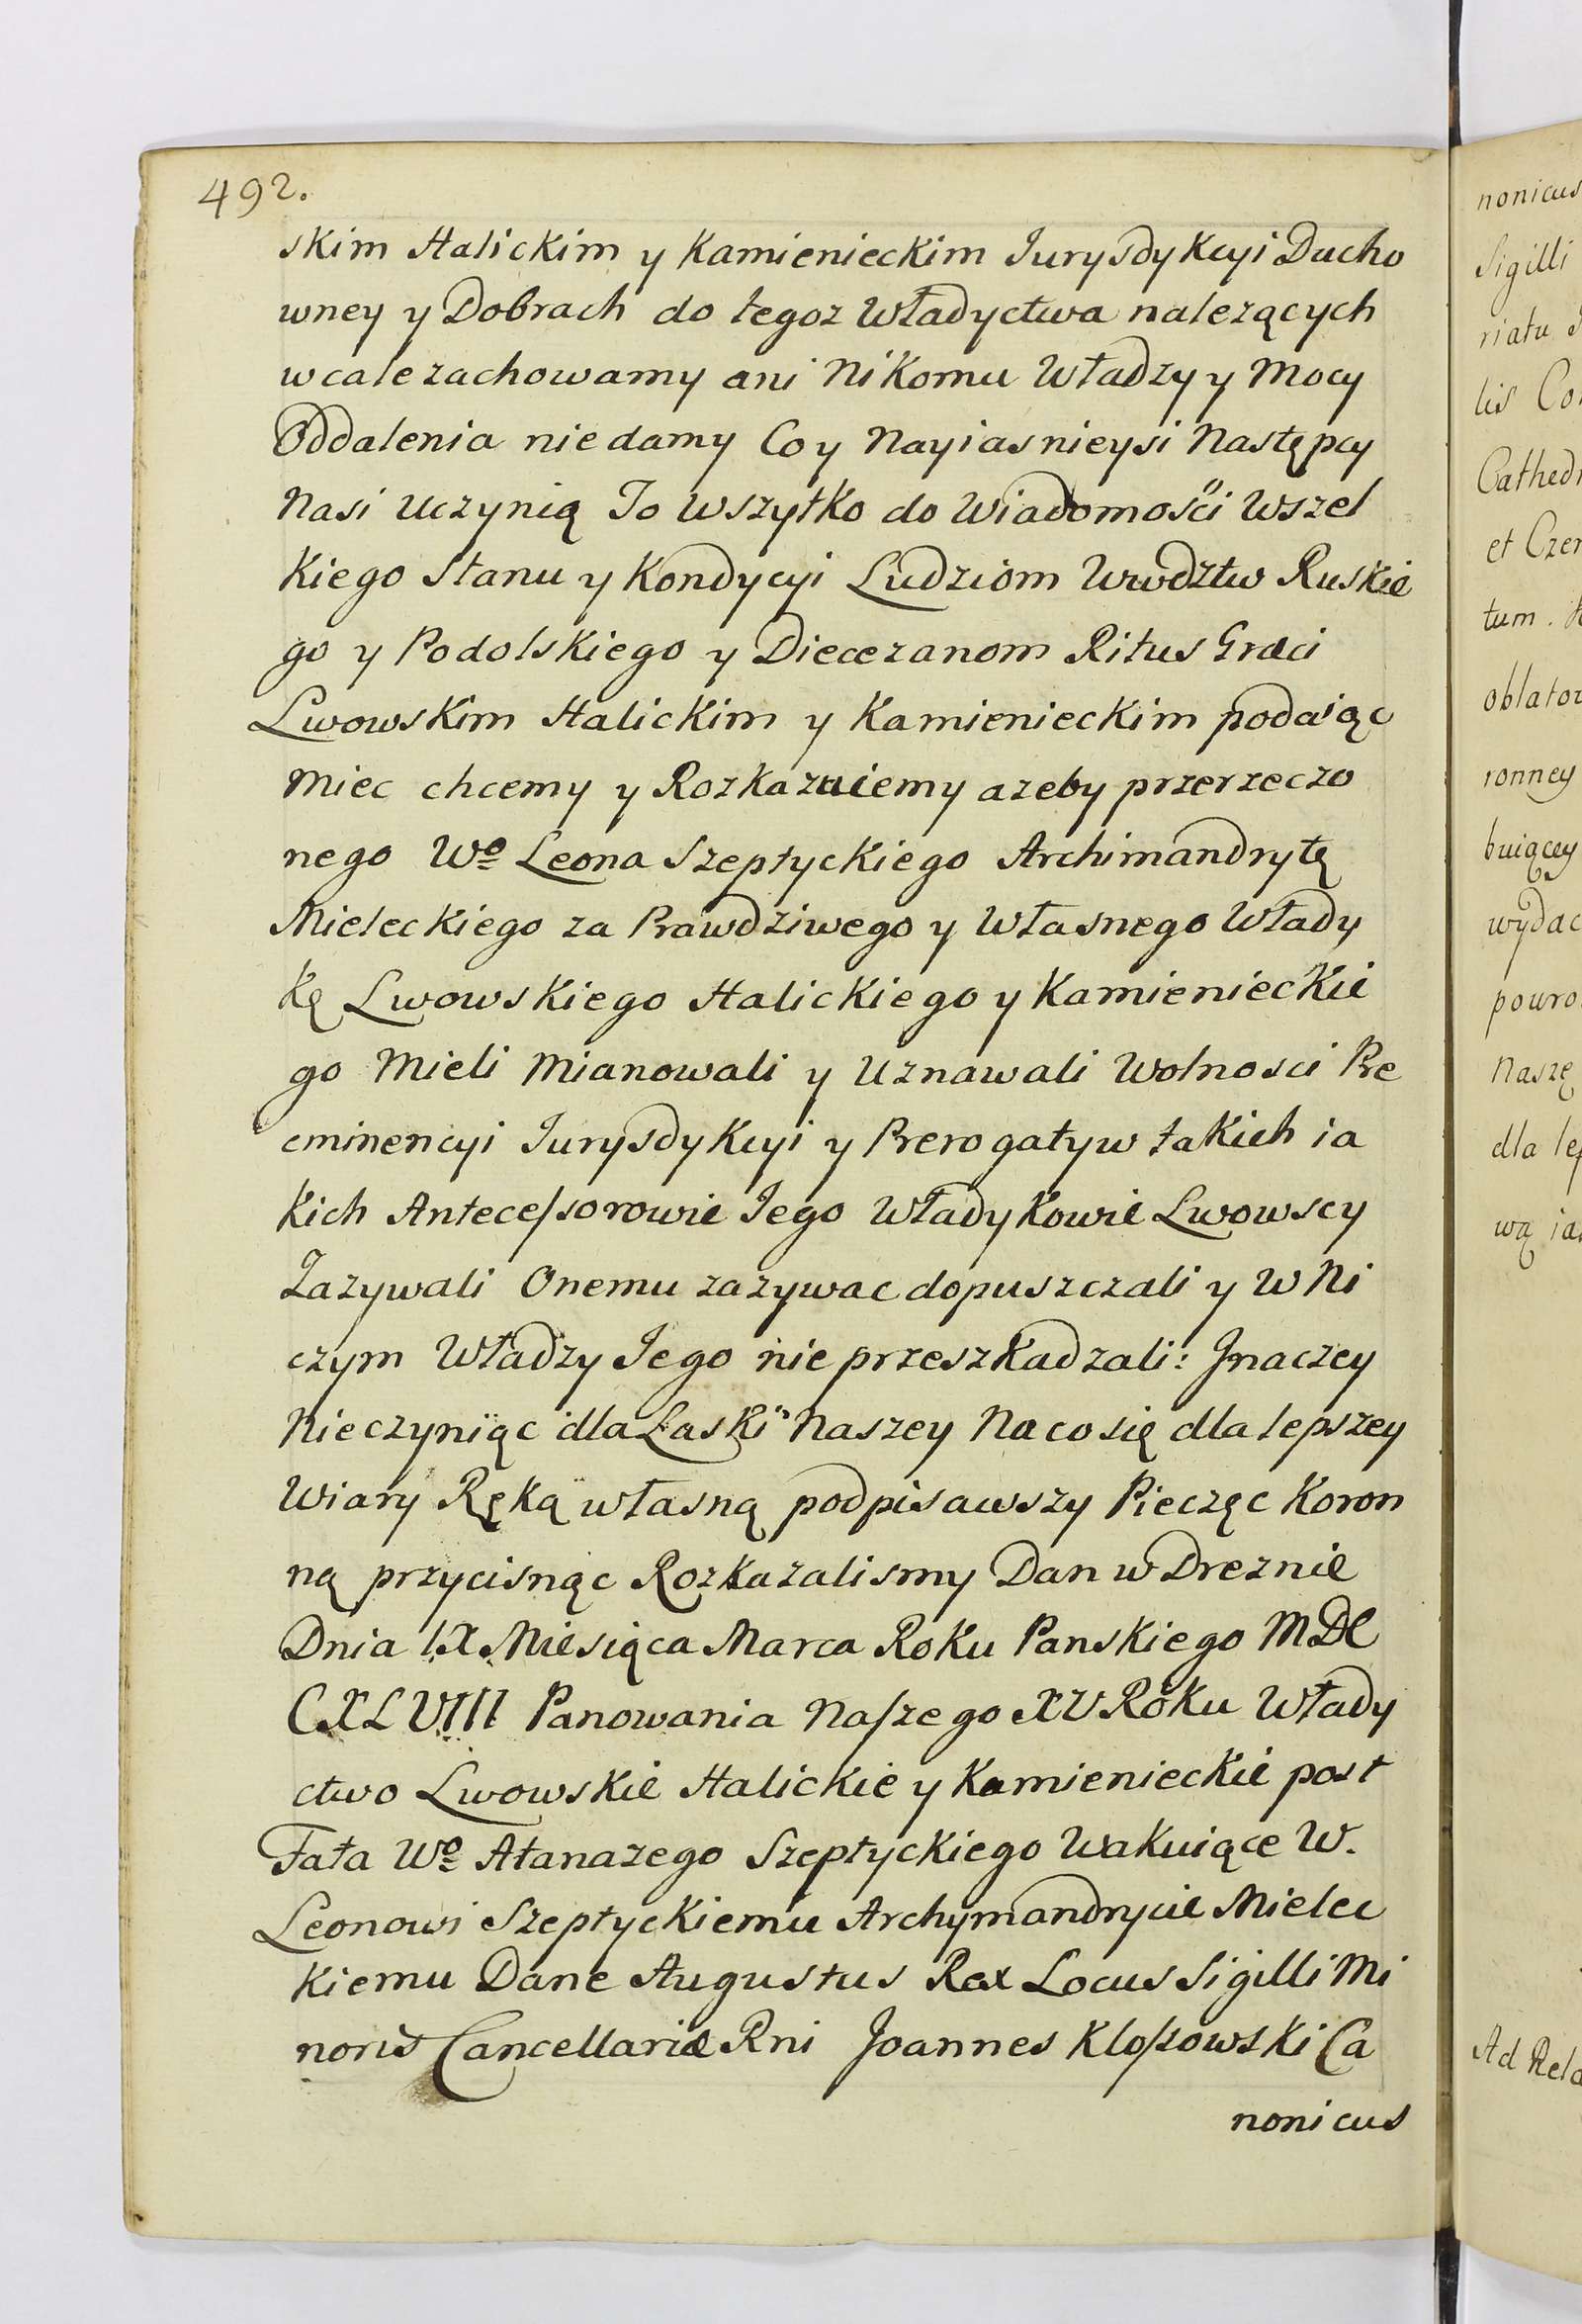 492.
skim Halickim y Kamienieckim Jurysdykcyi Ducho
wney y Dobrach do tegoz Władyctwa nalezących
wcale zachowamy ani Nikomu Władzy y Mocy
Oddalenia nie damy Co y Nayiasnieysi Następcy
Nasi Uczynią To Wszytko do Wiadomości Wszel
kiego Stanu y Kondycyi Ludziom Wwdztw Ruskie
go y Podolskiego y Diecezanom Ritus Græci
Lwowskim Halickim y Kamienieckim podaiąc
Miec chcemy y Rozkazuiemy azeby przerzeczo
nego Wo Leona Szeptyckiego Archimandrytę
Mieleckiego za Prawdziwego y Własnego Włady
kę Lwowskiego Halickiego y Kamienieckie
go Mieli Mianowali y Uznawali Wolnosci Pre
eminencyi Jurysdykcyi y Prerogatyw takich ia
kich Antecessorowie Jego Władykowie Lwowscy
Zazywali Onemu zazywac dopuszczali y W Ni
czym Władzy Jego nie przeszkadzali: Jnaczey
Nieczyniąc dla Łaski Naszey Na co się dla lepszey
Wiary Ręką własną podpisawszy Pieczęc Koron
ną przycisnąc Rozkazalismy Dan w Dreznie
Dnia IX Miesiąca Marca Roku Panskiego MDC
CXLVIII Panowania Naszego XV Roku Włady
ctwo Lwowskie Halickie y Kamienieckie post
Fata Wo Atanazego Szeptyckiego Wakuiące W.
Leonowi Szeptyckiemu Archymandrycie Mielec
kiemu Dane Augustus Rex Locus Sigilli Mi
noris Cancellariæ Rni Joannes Klossowski Ca
nonicus
nonicus
Sigilli
riatu
lis
Cathed
et Czer
tum.
oblator
ronney
buiącey
wydac
powro
Naszę
dla lep
wą ia
Ad Rela